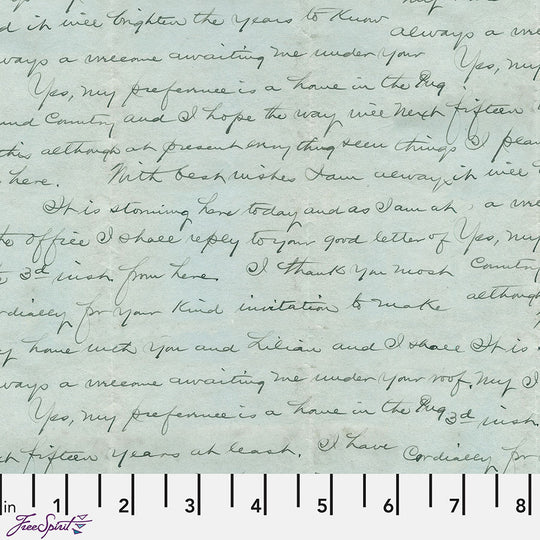 d it will brighten the years to know
always a welcome awaiting me under your
Yes, my
Yes, my preference is a home in the Pug
and Country and I hope the way will next fifteen
this although at present everything seen things I plan
s here. With best wishes I am always, it will
It is storming here today and as I am at, a we
the office I shall reply to your good letter of Yes, my
3d inst. from here. I thank you most Country
although
rdially for your kind invitation to make
y home with you and Lilian and I shall It is
ways a welcome awaiting me under your roof. My I
Yes, my preference is a home in the Pug 3d inst.
xt fifteen years at least. I have Cordially for
in 1 2 3 4 5 6 7 8
FreeSpirit